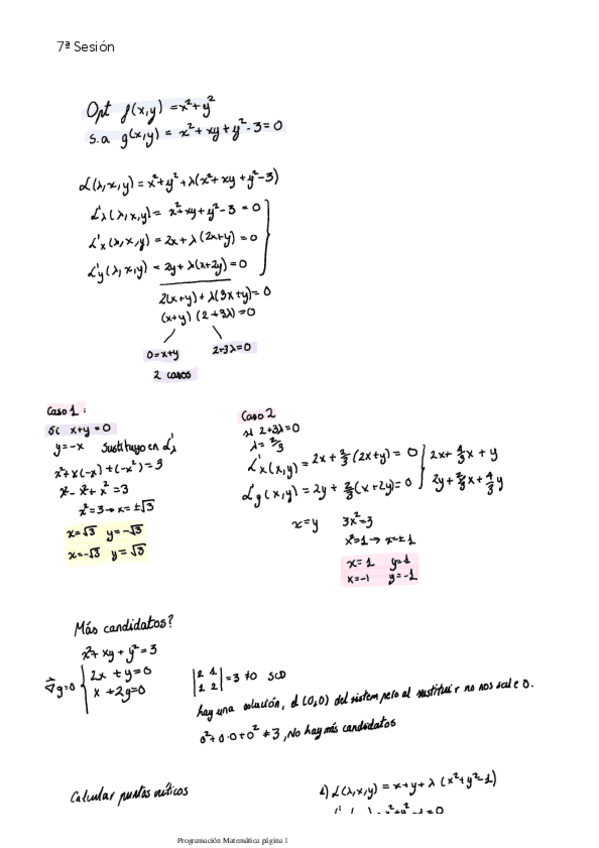 7ª Sesión
Opt f(x,y) = x²+y²
s.a g(x,y) = x²+xy+y²-3=0
L(λ,x,y) = x²+y²+λ(x²+xy+y²-3)
L'λ(λ,x,y) = x²+xy+y²-3 = 0
L'x(λ,x,y) = 2x+λ(2x+y)=0
L'y(λ,x,y) = 2y+λ(x+2y)=0
2(x+y)+λ(3x+y)=0
(x+y) (2+3λ)=0
0=x+y 2+3λ=0
2 casos
Caso 1:
Si x+y=0
y=-x Sustituyo en L'λ
x²+x(-x)+(-x²)=3
x²-x²+x²=3
x²=3→x=±√3
x=√3 y=-√3
x=-√3 y=√3
Caso 2
si 2+3λ=0
λ=2/3
L'x(x,y) = 2x+2/3(2x+y) = 0 2x+4/3x+y
L'y(x,y) = 2y+2/3(x+2y)=0 2y+2/3x+4/3y
x=y 3x²=3
x²=1→x=±1
x=1 y=1
x=-1 y=-1
Más candidatos?
x²+xy+y²=3
∇g=0 2x+y=0
x+2y=0
|2 1| =3≠0 SCD
|1 2|
hay una solución, el (0,0) del sistem pero al sustituir no nos sale 0.
0²+0·0+0²≠3, No hay más candidatos
Calcular puntos críticos
L(λ,x,y) = x+y+λ(x²+y²-1)
Programación Matemática página 1